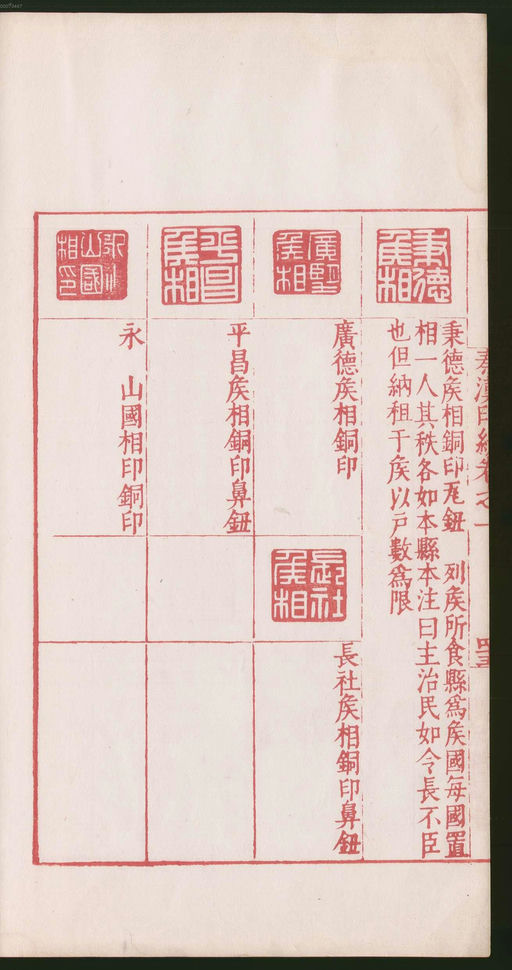 秉德矦相
秉德矦相銅印瓦鈕 列矦所食縣爲矦國每國置
相一人其秩各如本縣本注曰主治民如令長不臣
也但納租于矦以戸數爲限
廣德矦相銅印
長社矦相
長社矦相銅印鼻鈕
平昌矦相
平昌矦相銅印鼻鈕
永 山國相印銅印